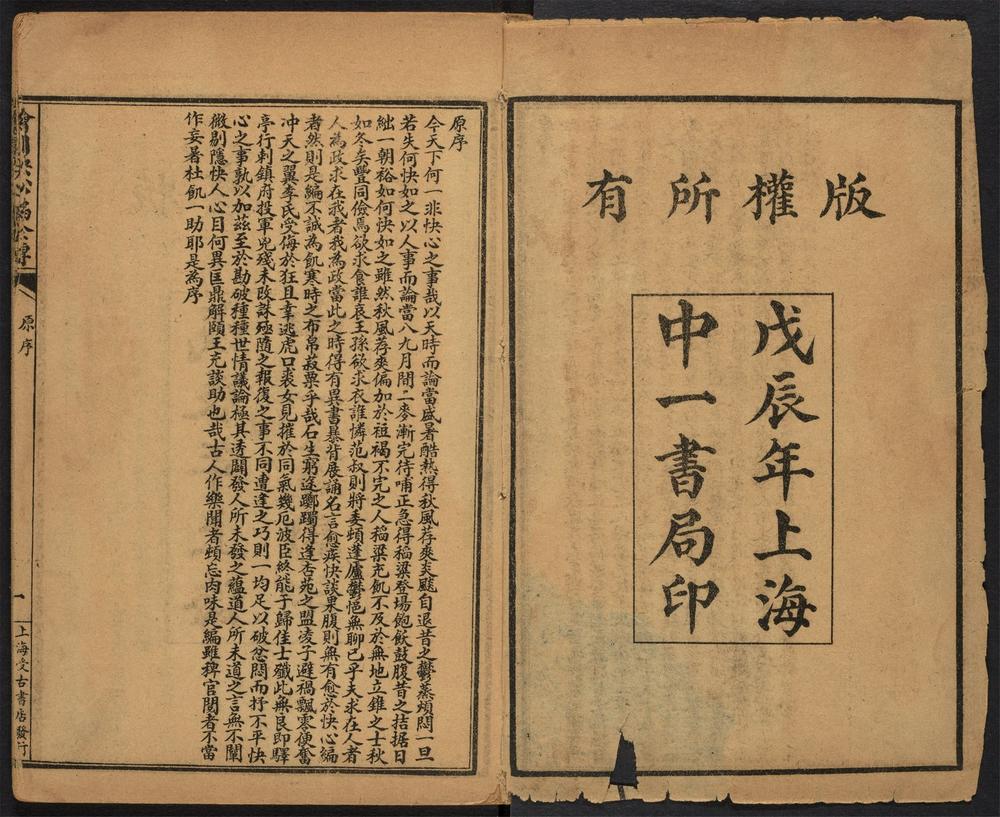 版權所有
戊辰年上海
中一書局印
原序
今天下何一非快心之事哉以天時而論當盛暑酷熱得秋風荐爽炎飈自退昔之鬱蒸煩悶一旦
若失何快如之以人事而論當八九月間二麥漸完待哺正急得稻粱登場飽飲鼓腹昔之拮据日
絀一朝裕如何快如之雖然秋風荐爽偏加於袒褐不完之人稻粱充飢不及於無地立錐之士秋
如冬矣豐同儉焉欲求食誰哀王孫欲求衣誰憐范叔則將委頓蓬廬鬱悒無聊已乎夫求在人者
人為政求在我者我為政當此之時得有異書暴背展誦名言愈疾快談果腹則無有愈於快心編
者然則是編不誠為飢寒時之布帛菽粟乎哉石生窮途躑躅得逢杏苑之盟凌子避禍飄零便奮
冲天之翼李氏受侮於狂且幸逃虎口裘女見摧於同氣幾厄波臣終能于歸佳士殲此無良即驛
亭行刺鎮府投軍兇殘未改誅殛隨之報復之事不同遭逢之巧則一均足以破忿悶而抒不平快
心之事孰以加茲至於勘破種種世情議論極其透闢發人所未發之蘊道人所未道之言無不闡
微剔隱快人心目何異匡鼎解頤王充談助也哉古人作樂聞者頓忘肉味是編雖稗官閱者不當
作妄著杜飢一助耶是為序
快心編全傳
原序
一
上海受古書店發行